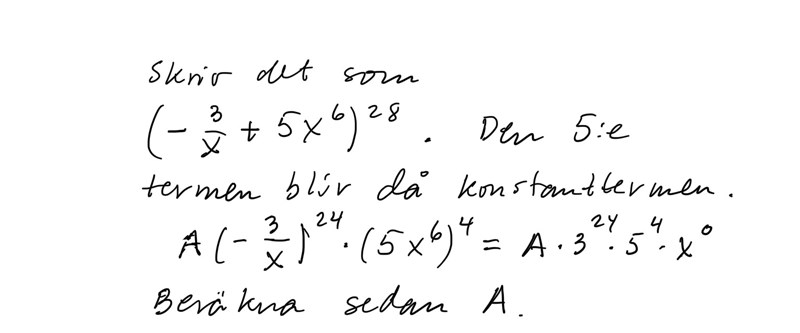 Skriv det som
(- 3/x + 5x^6)^28 . Den 5:e
termen blir då konstanttermen.
A(- 3/x)^24 · (5x^6)^4 = A · 3^24 · 5^4 · x^0
Beräkna sedan A.